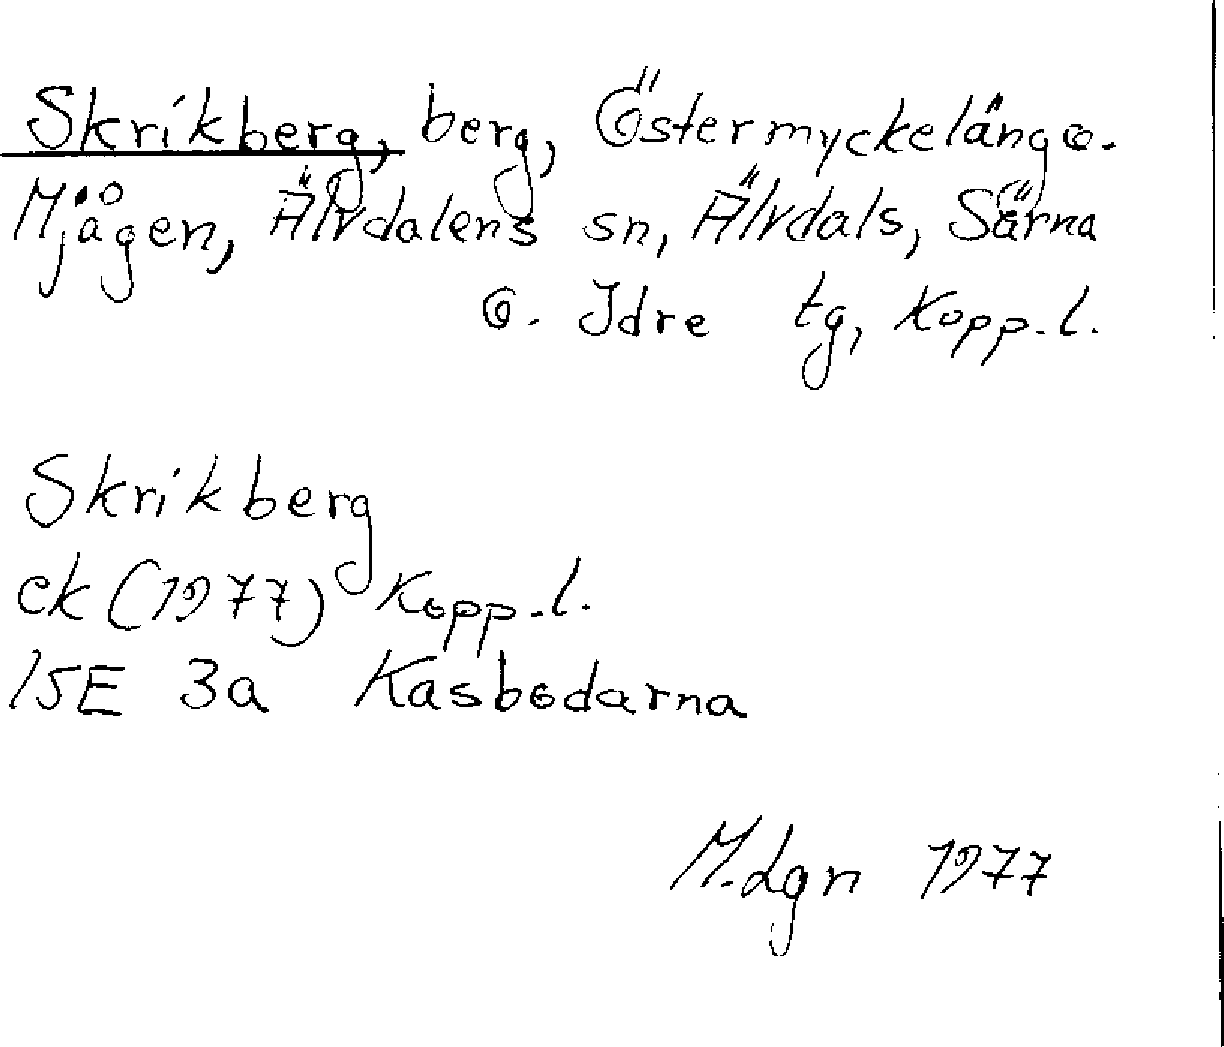 Skrikberg, berg, Östermyckeläng o.
Mjågen, Älvdalens sn, Älvdals, Särna
o. Idre tg, Kopp. l.
Skrikberg
ek (1977) Kopp. l.
15E 3a Kasbodarna
M. Lgn 1977